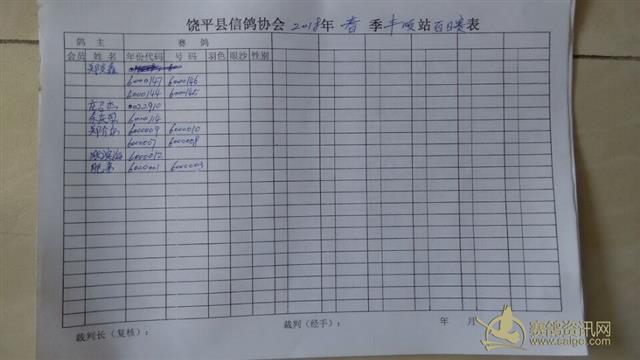 饶平县信鸽协会 2018年 春 季丰顺站百日赛表
鸽 主 赛 鸽
会员 姓 名 年份代码 号 码 羽色 眼沙 性别
6000147 6000146
6000144 6000145
022910
6000114
6000009 6000010
600007 6000008
6000012
6000001 6000003
裁判长（复核）： 裁判（经手）： 年 月
赛鸽资讯网
www.saige.com